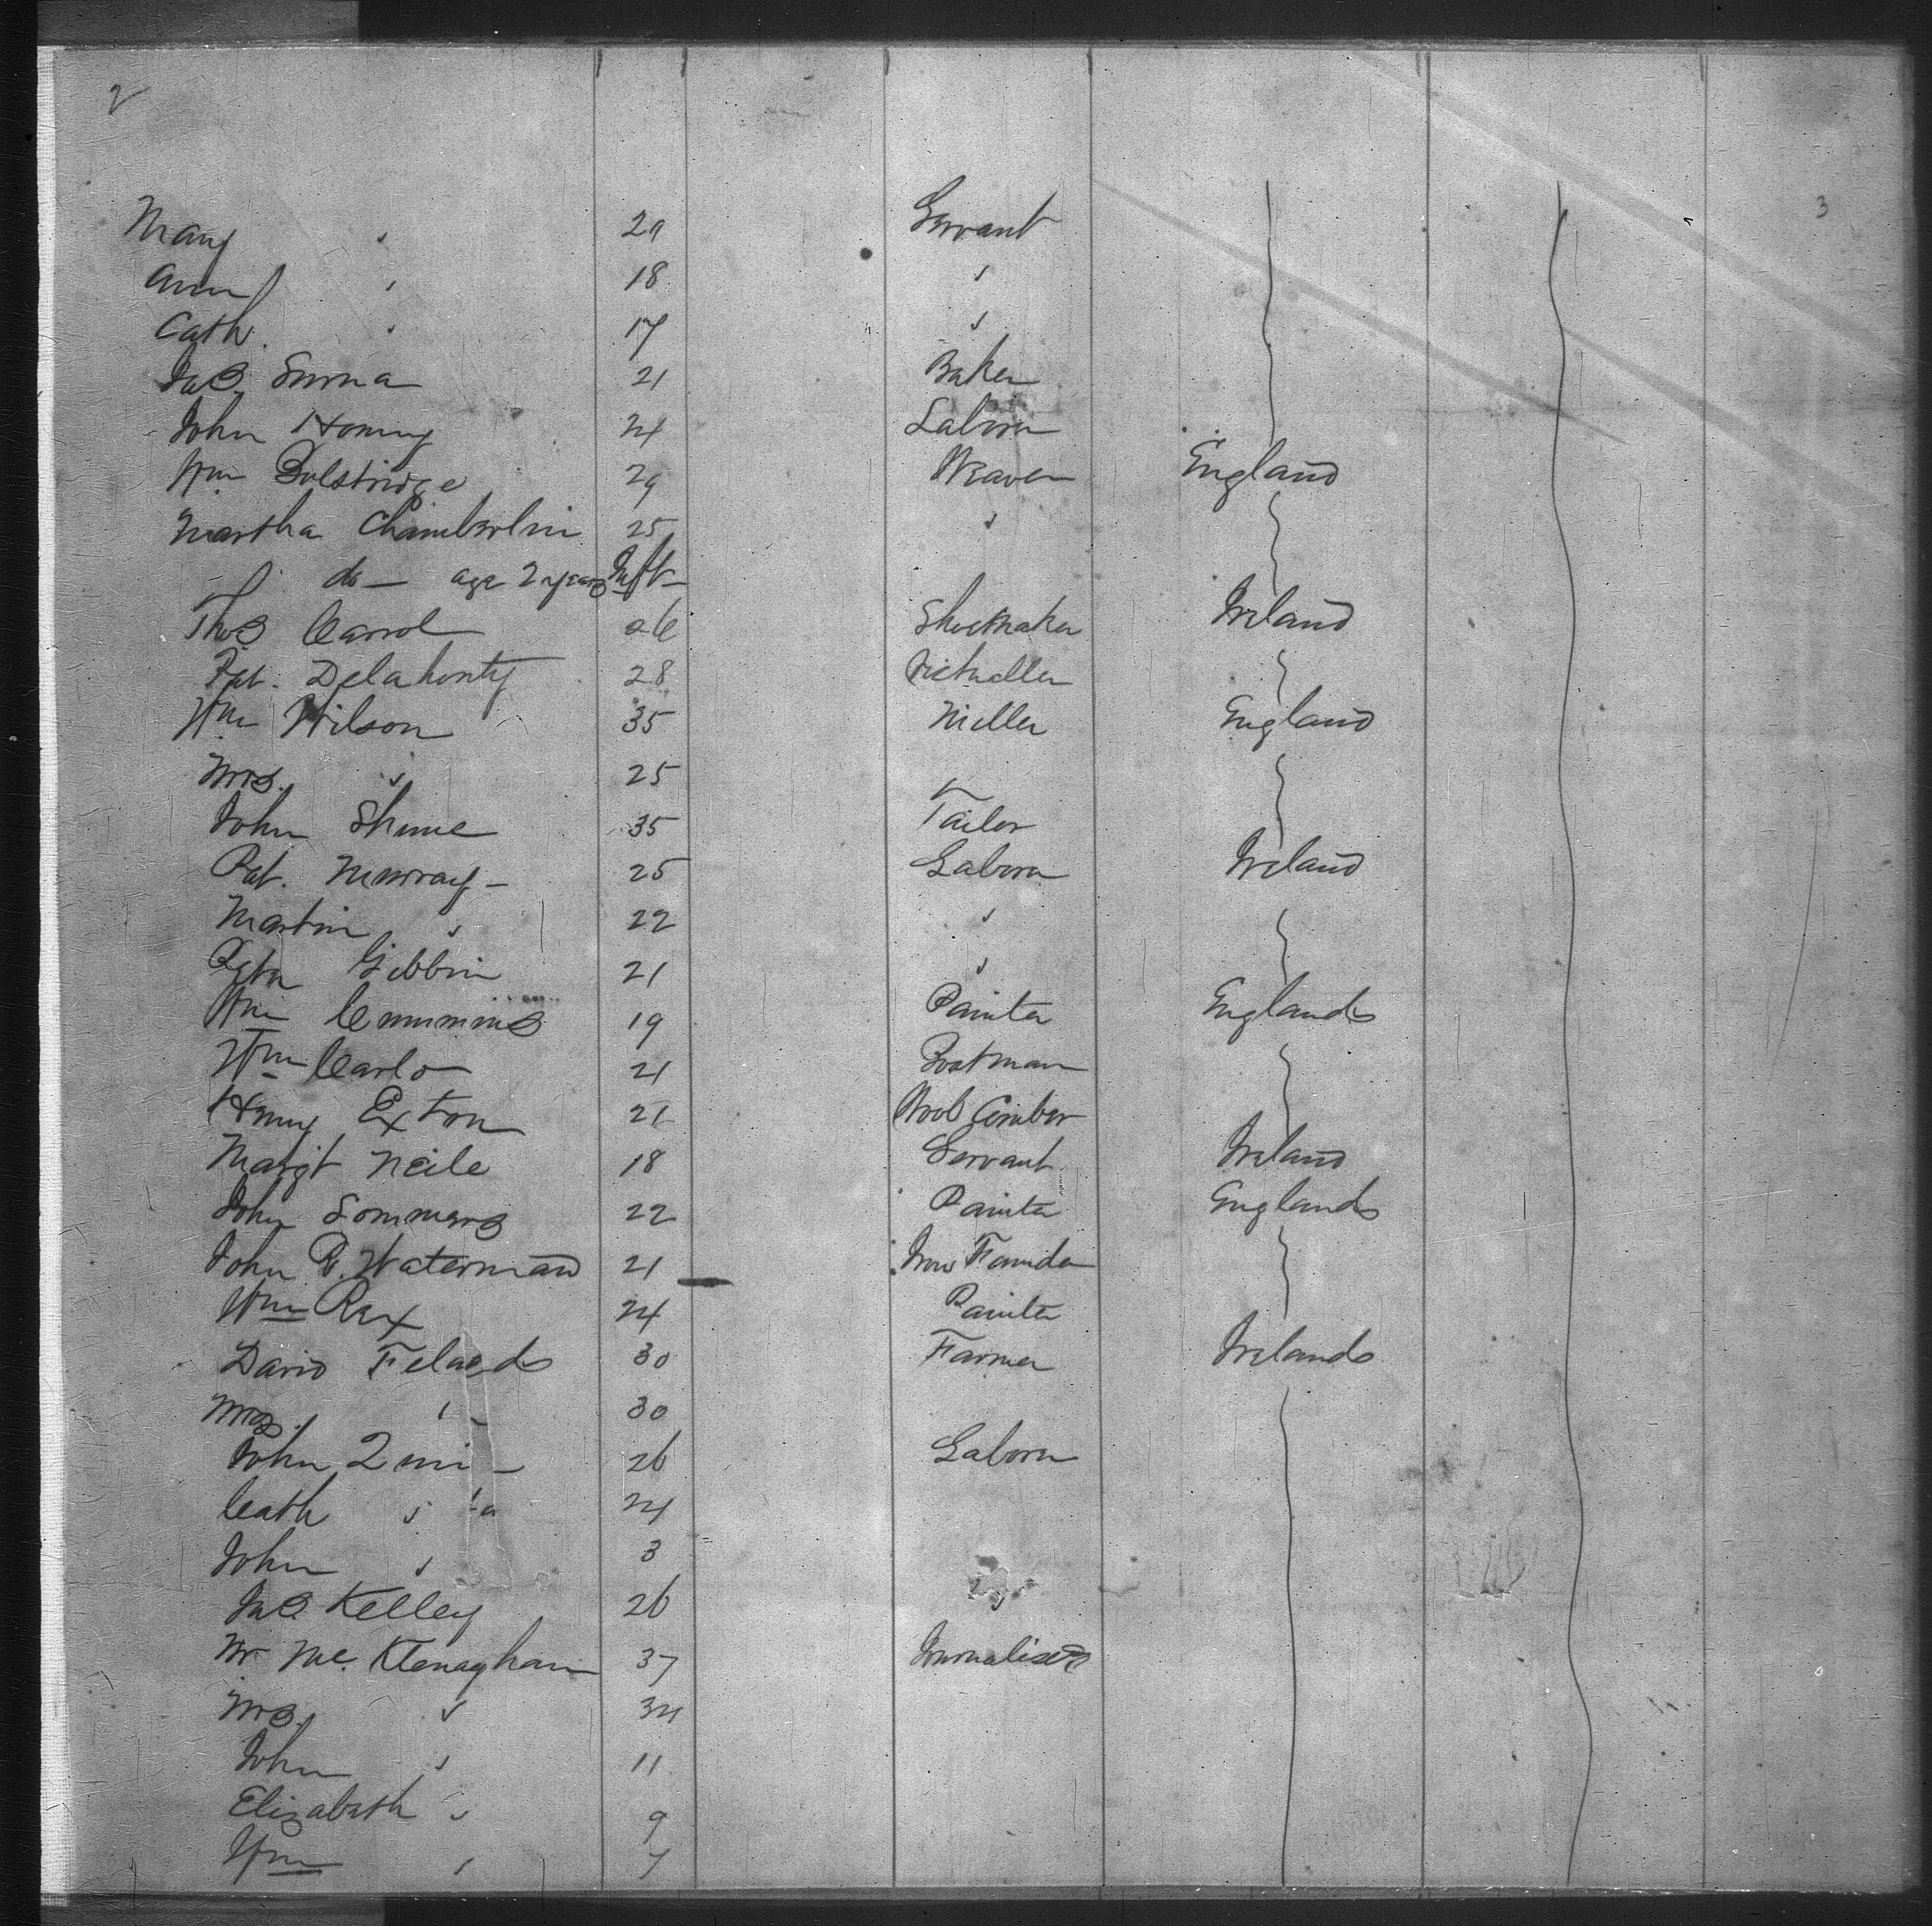 2
3
Mary " 29 Servant
Ann " 18 "
Cath. " 17 "
Jas. 21 Baker
John 24 Labourer
Wm Bulstridge 29 Weaver England
Martha Chamberlin 25 "
do — age 2 years Inft
Thos Carrol 26 Shoemaker Ireland
Pat. Delahonty 28 Victualler
Wm Wilson 35 Miller England
Mrs. " 25
John Shine 35 Tailor
Pat. Murray — 25 Laborer Ireland
Martin " 22 "
Peter Gibbin 21 "
Wm Cummins 19 Painter England
Wm Carlo 21 Boatman
Henry Exton 21 Wool Comber
Margt Neile 18 Servant Ireland
John Sommers 22 Painter England
John R. Waterman 21 Iron Founder
Wm Rex 24 Painter
David 30 Farmer Ireland
Mrs. " 30
John 26 Laborer
Cath " 24
John " 3
Jas. Kelley 26 "
Mr. Mc. Klenaghan 37 Journalist
Mrs. " 34
John " 11
Elizabeth " 9
Wm " 7